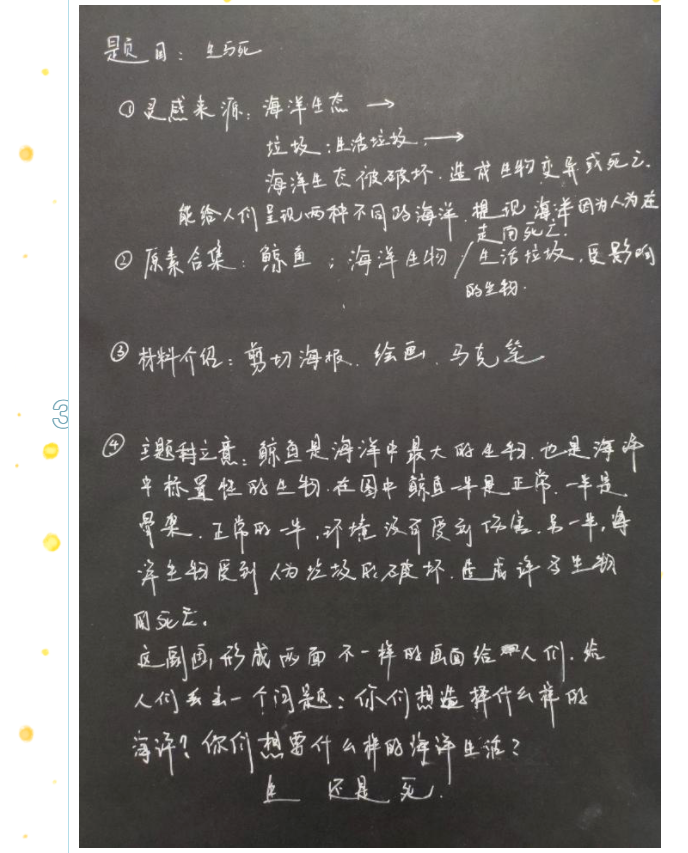 题目：生与死
①灵感来源：海洋生态 →
垃圾：生活垃圾. →
海洋生态被破坏.造成生物变异或死亡.
能给人们呈现两种不同的海洋.提现海洋因为人为在
走向死亡.
②原素合集：鲸鱼；海洋生物/生活垃圾.受影响
的生物.
③材料介绍：剪切海报.绘画.马克笔
3
④主题和立意：鲸鱼是海洋中最大的生物.也是海洋
中标置性的生物.在图中鲸鱼一半是正常.一半是
骨架.正常的一半,环境没有受到伤害.另一半,海
洋生物受到人为垃圾的破坏.造成许多生物
死亡.
这副画,形成两面不一样的画面给人们.给
人们丢去一个问题：你们想选择什么样的
海洋？你们想要什么样的海洋生活？
生 还是 死.